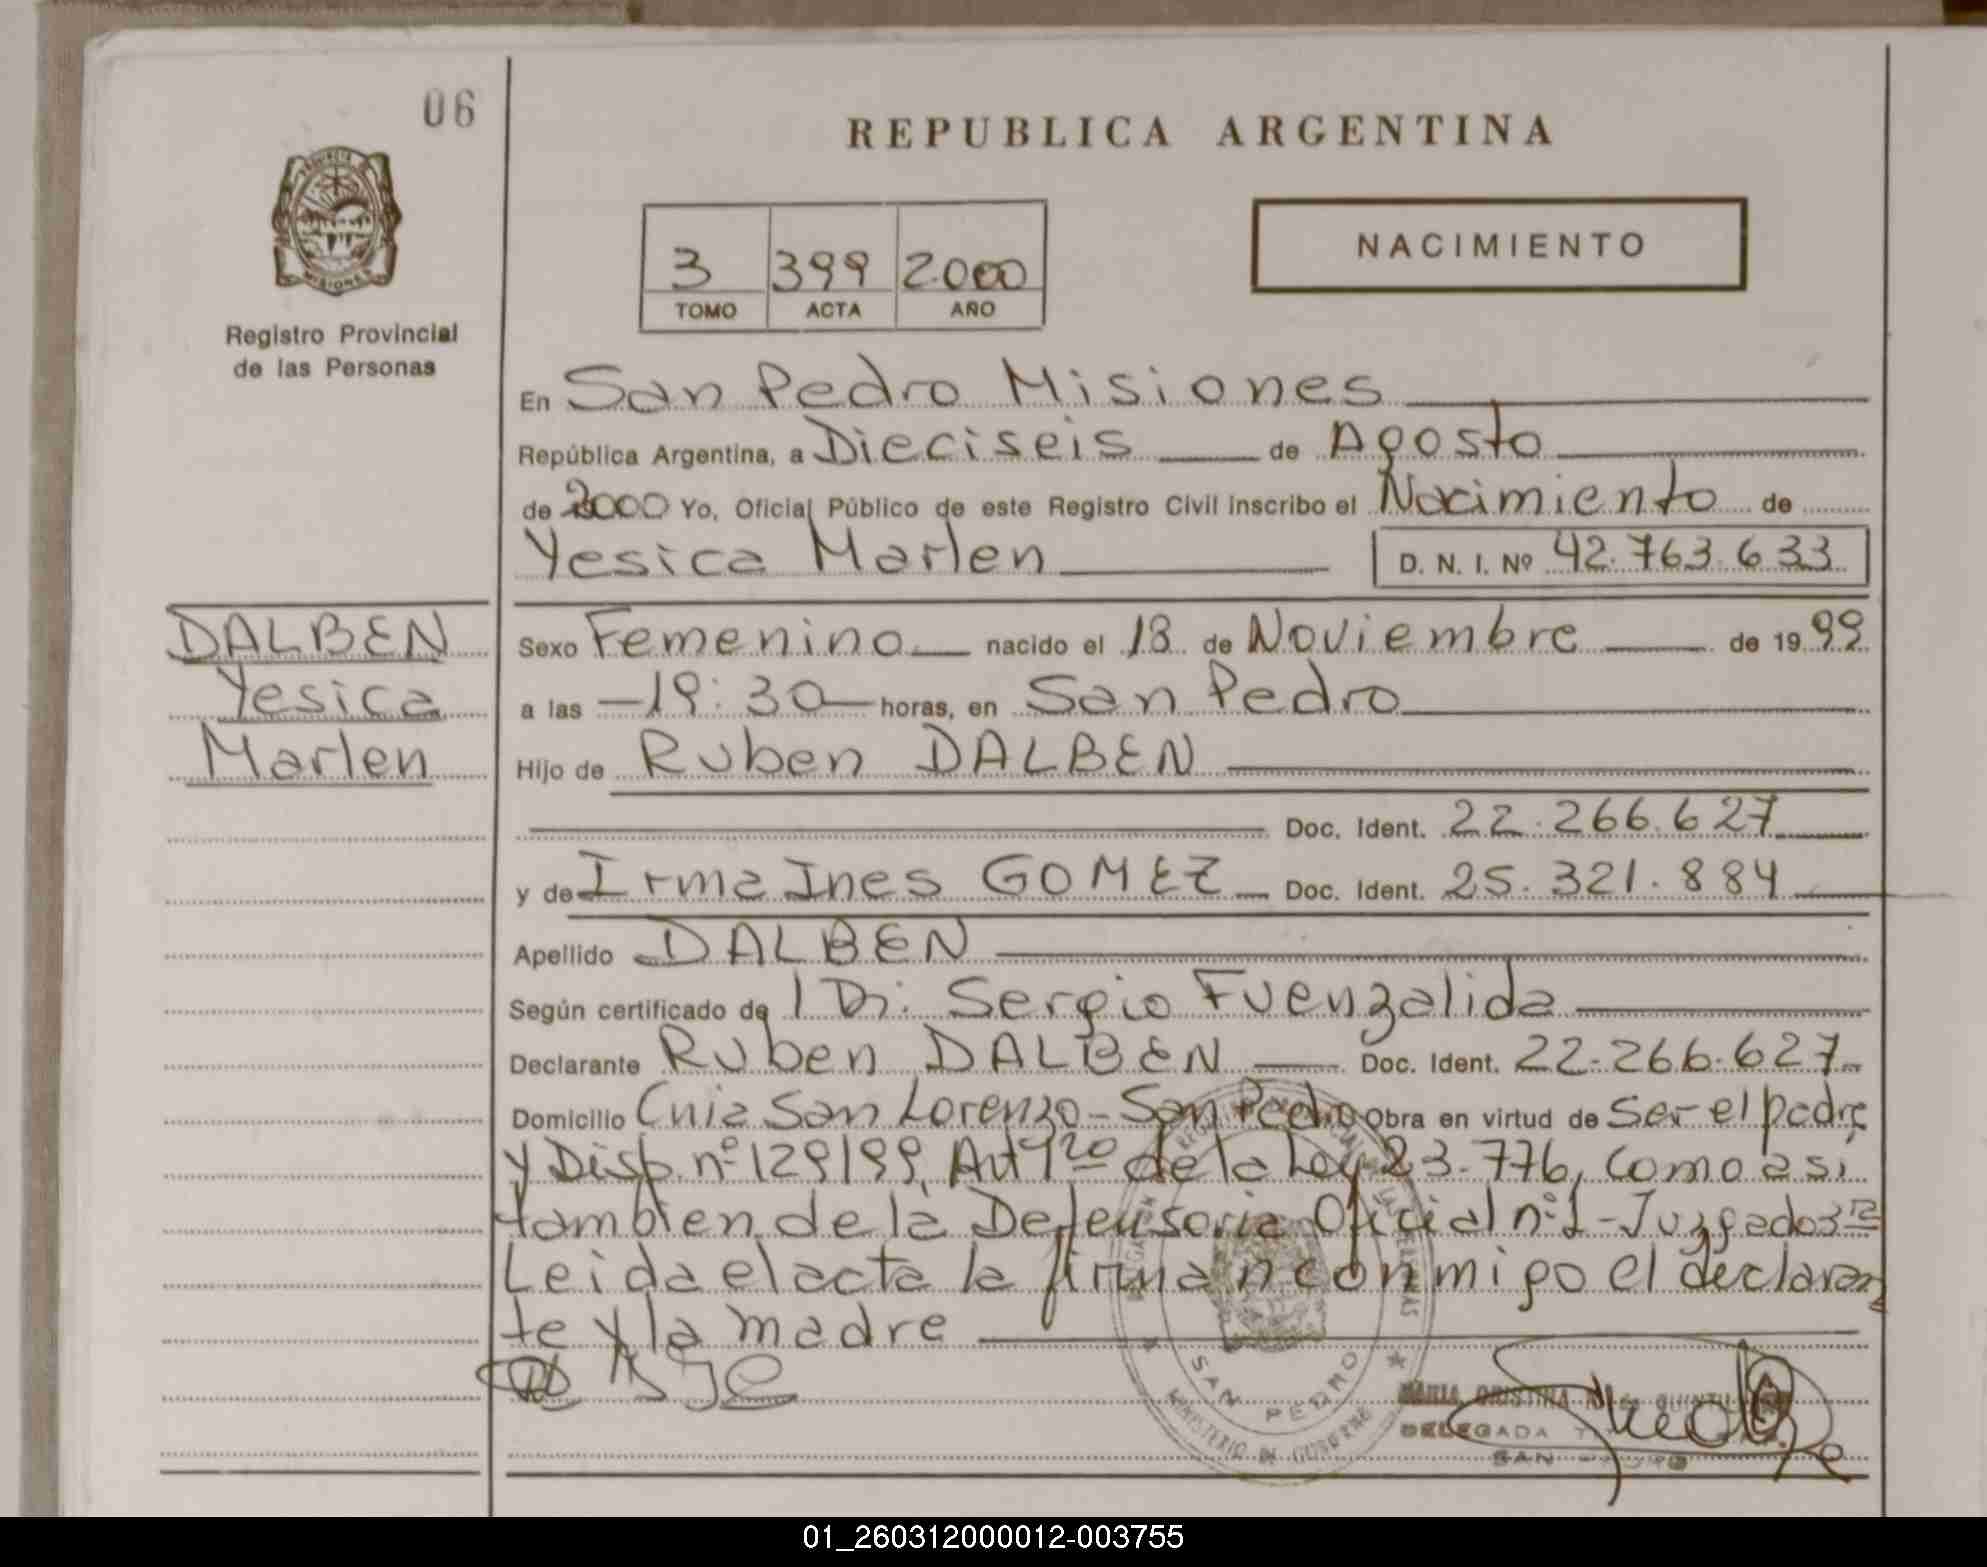 06
REPUBLICA ARGENTINA
NACIMIENTO
3 399 2000
TOMO ACTA AÑO
MISIONES
Registro Provincial
de las Personas
En San Pedro Misiones
República Argentina, a Dieciseis de Agosto
de 2000 Yo, Oficial Público de este Registro Civil inscribo el Nacimiento de
Yesica Marlen D. N. I. Nº 42.763.633
DALBEN
Yesica
Marlen
Sexo Femenino nacido el 18 de Noviembre de 1999
a las 19:30 horas, en San Pedro
Hijo de Ruben DALBEN
Doc. Ident. 22.266.627
y de Irma Ines GOMEZ Doc. Ident. 25.321.884
Apellido DALBEN
Según certificado de l Dr. Sergio Fuenzalida
Declarante Ruben DALBEN Doc. Ident. 22.266.627
Domicilio Cnia San Lorenzo - San Pedro Obra en virtud de Ser el padre
y Disp. nº 129/99, Art 1º de la Ley 23.776, como asi
tambien de la Defensoria Oficial nº 1 - Juzgado
Leida el acta la firman conmigo el declaran
te y la madre
SAN PEDRO
MINISTERIO DE GOBIERNO
MARIA CRISTINA
DELEGADA
SAN PEDRO
01_260312000012-003755